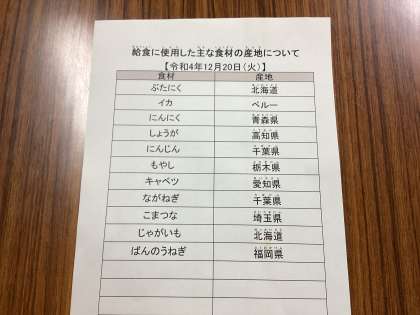 給食に使用した主な食材の産地について
【令和4年12月20日(火)】
食材 産地
ぶたにく 北海道
イカ ペルー
にんにく 青森県
しょうが 高知県
にんじん 千葉県
もやし 栃木県
キャベツ 愛知県
ながねぎ 千葉県
こまつな 埼玉県
じゃがいも 北海道
ばんのうねぎ 福岡県